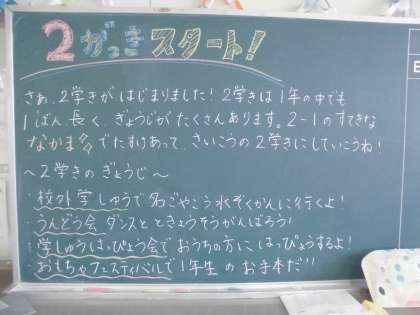 2がっきスタート!
さぁ、2学きがはじまりました!2学きは1年の中でも
1ばん長く、ぎょうじがたくさんあります。2-1のすてきな
なかまたちでたすけあって、さいこうの2学きにしていこうね!
〜2学きのぎょうじ〜
・校外学しゅうで名ごやこう水ぞくかんに行くよ!
・うんどう会 ダンスとときょうそうがんばろう!
・学しゅうはっぴょう会でおうちの方にはっぴょうするよ!
・おもちゃフェスティバルで1年生のお手本だ!!
E